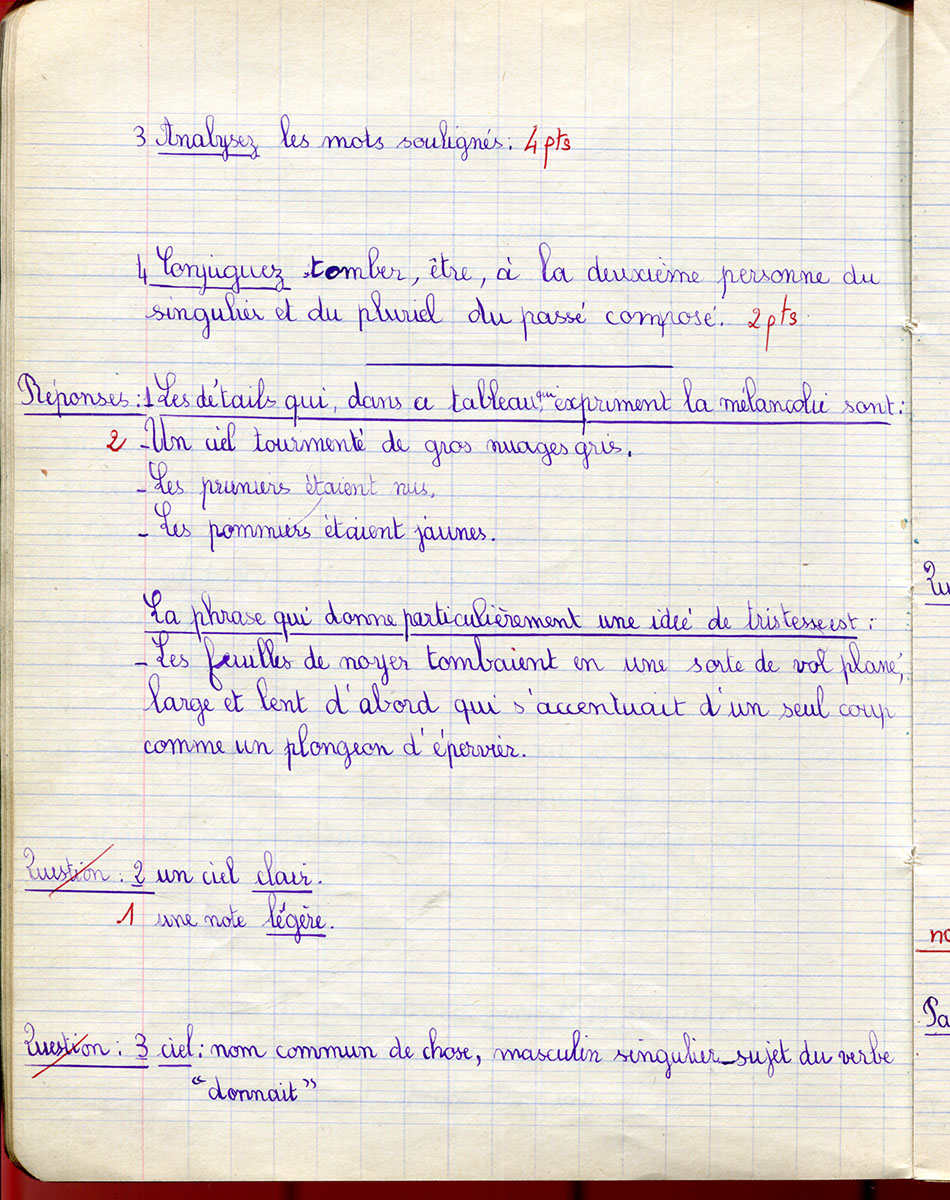 3 Analysez les mots soulignés : 4 pts
4 Conjuguez tomber, être, à la deuxième personne du
singulier et du pluriel du passé composé. 2 pts
Réponses : 1 Les détails qui, dans ce tableau, qui expriment la mélancolie sont :
2 - Un ciel tourmenté de gros nuages gris.
- Les pruniers étaient nus.
- Les pommiers étaient jaunes.
La phrase qui donne particulièrement une idée de tristesse est :
- Les feuilles de noyer tombaient en une sorte de vol plané,
large et lent d'abord qui s'accentuait d'un seul coup
comme un plongeon d'épervier.
Question : 2 un ciel clair.
1 une note légère.
Question : 3 ciel : nom commun de chose, masculin singulier_sujet du verbe
"donnait"